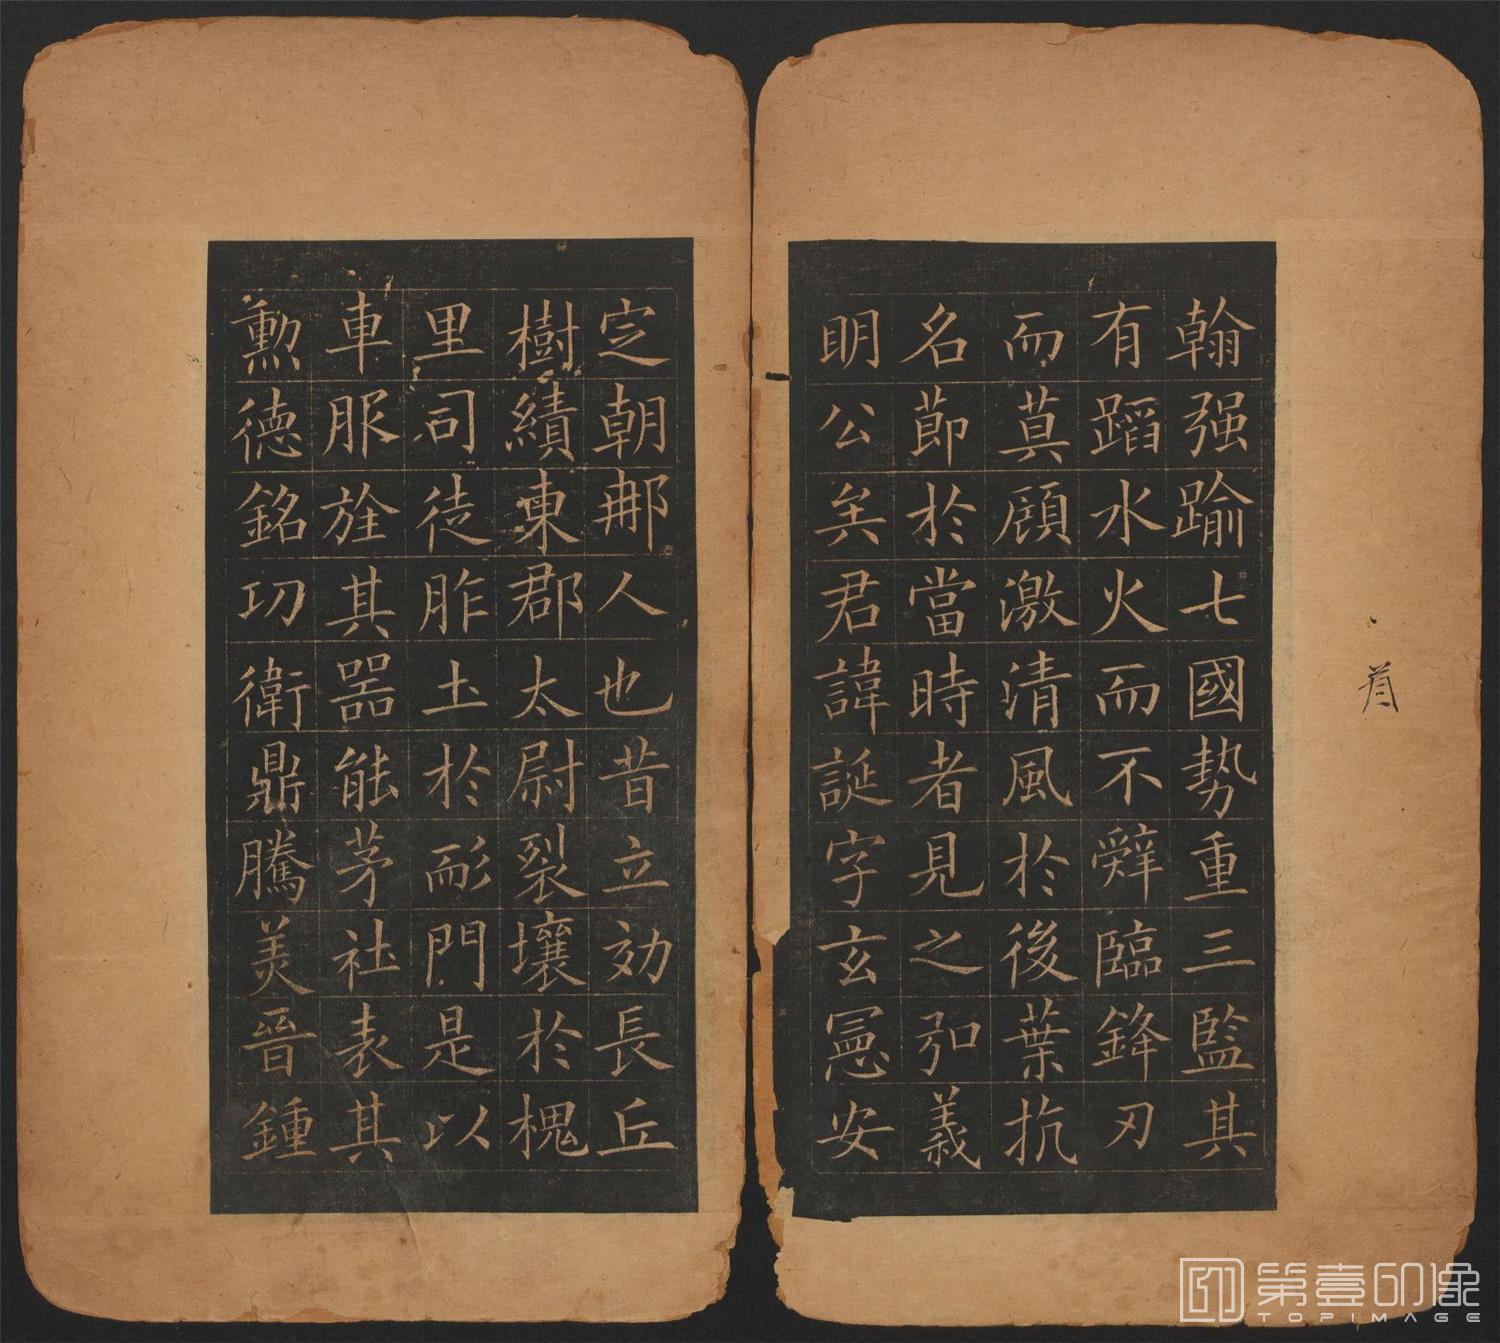 翰强踰七國勢重三監其
有蹈水火而不辤臨鋒刃
而莫顧激清風於後葉抗
名莭於當時者見之弘義
明公矣君諱誕字玄憲安
定朝郍人也昔立効長丘
樹績東郡太尉裂壤於槐
里司徒胙土於耏門是以
車服旌其器能茅社表其
勲德銘功衛鼎騰美晉鍾
第壹印像
TOPIMAGE